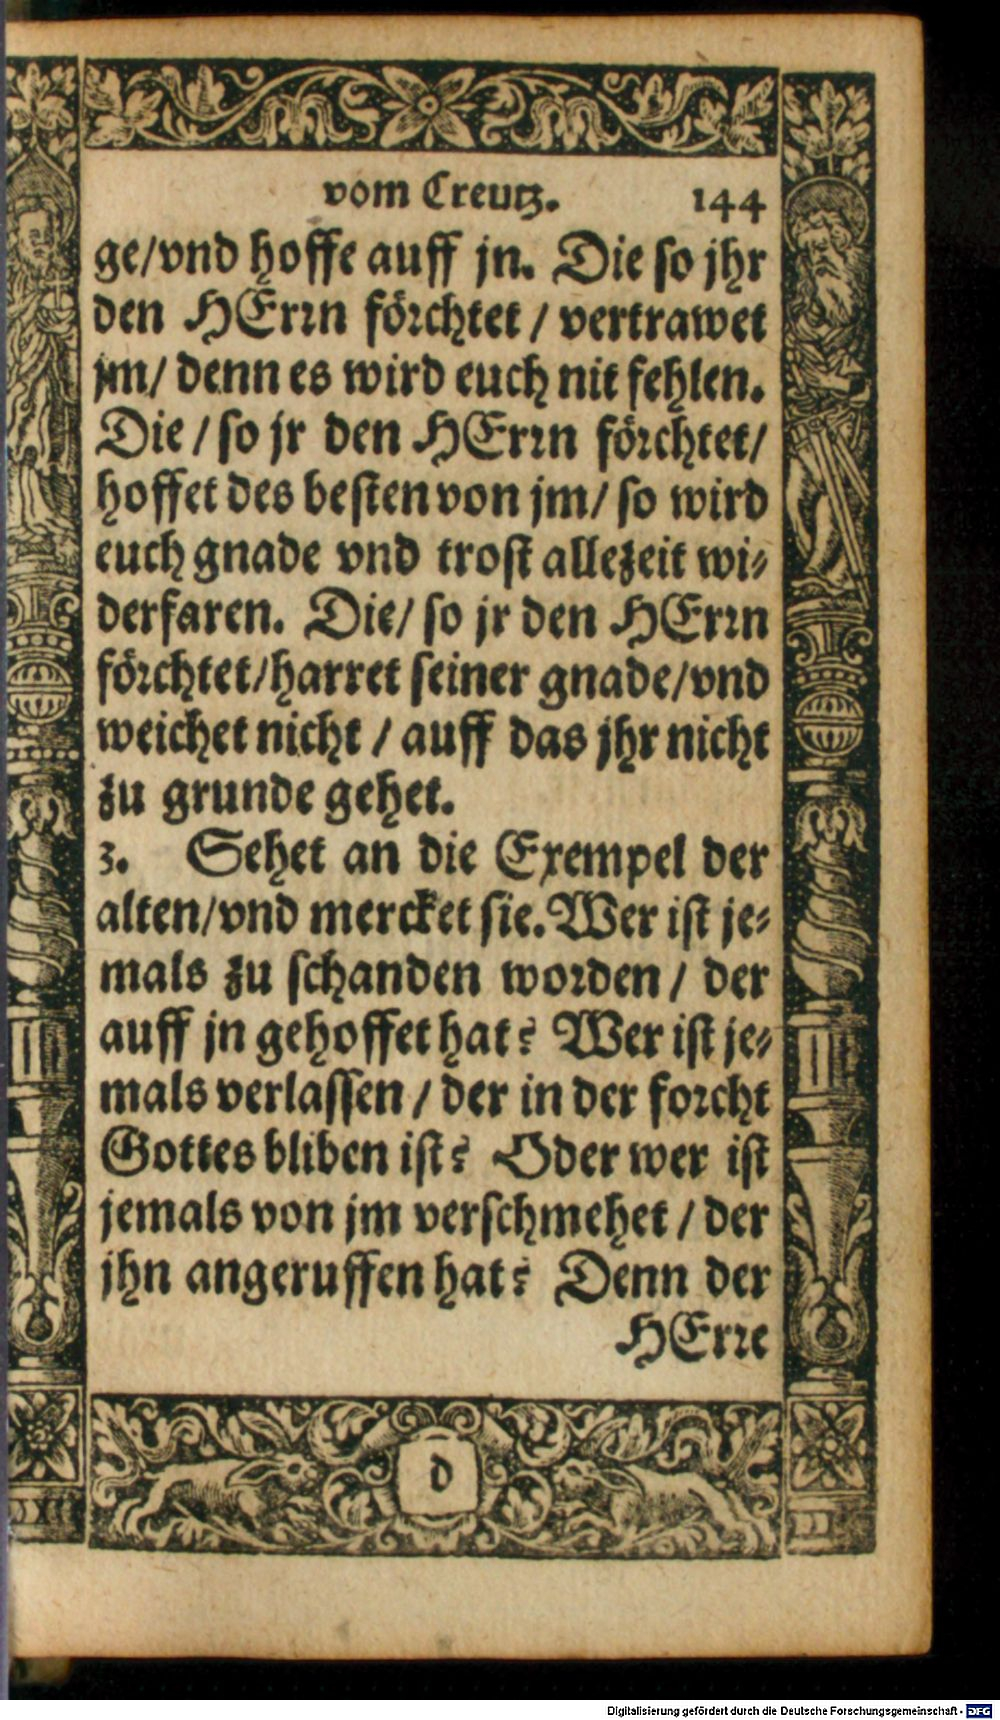 vom Creutz. 144
ge/vnd hoffe auff jn. Die so jhr
den HErrn förchtet / vertrawet
jm/ denn es wird euch nit fehlen.
Die / so jr den HErrn förchtet/
hoffet des besten von jm/ so wird
euch gnade vnd trost allezeit wi-
derfaren. Die/ so jr den HErrn
förchtet/harret seiner gnade/vnd
weichet nicht / auff das jhr nicht
zu grunde gehet.
3. Sehet an die Exempel der
alten/vnd mercket sie. Wer ist je-
mals zu schanden worden / der
auff jn gehoffet hat? Wer ist je-
mals verlassen / der in der forcht
Gottes bliben ist? Oder wer ist
jemals von jm verschmehet / der
jhn angeruffen hat? Denn der
HErre
d
Digitalisierung gefördert durch die Deutsche Forschungsgemeinschaft - DFG